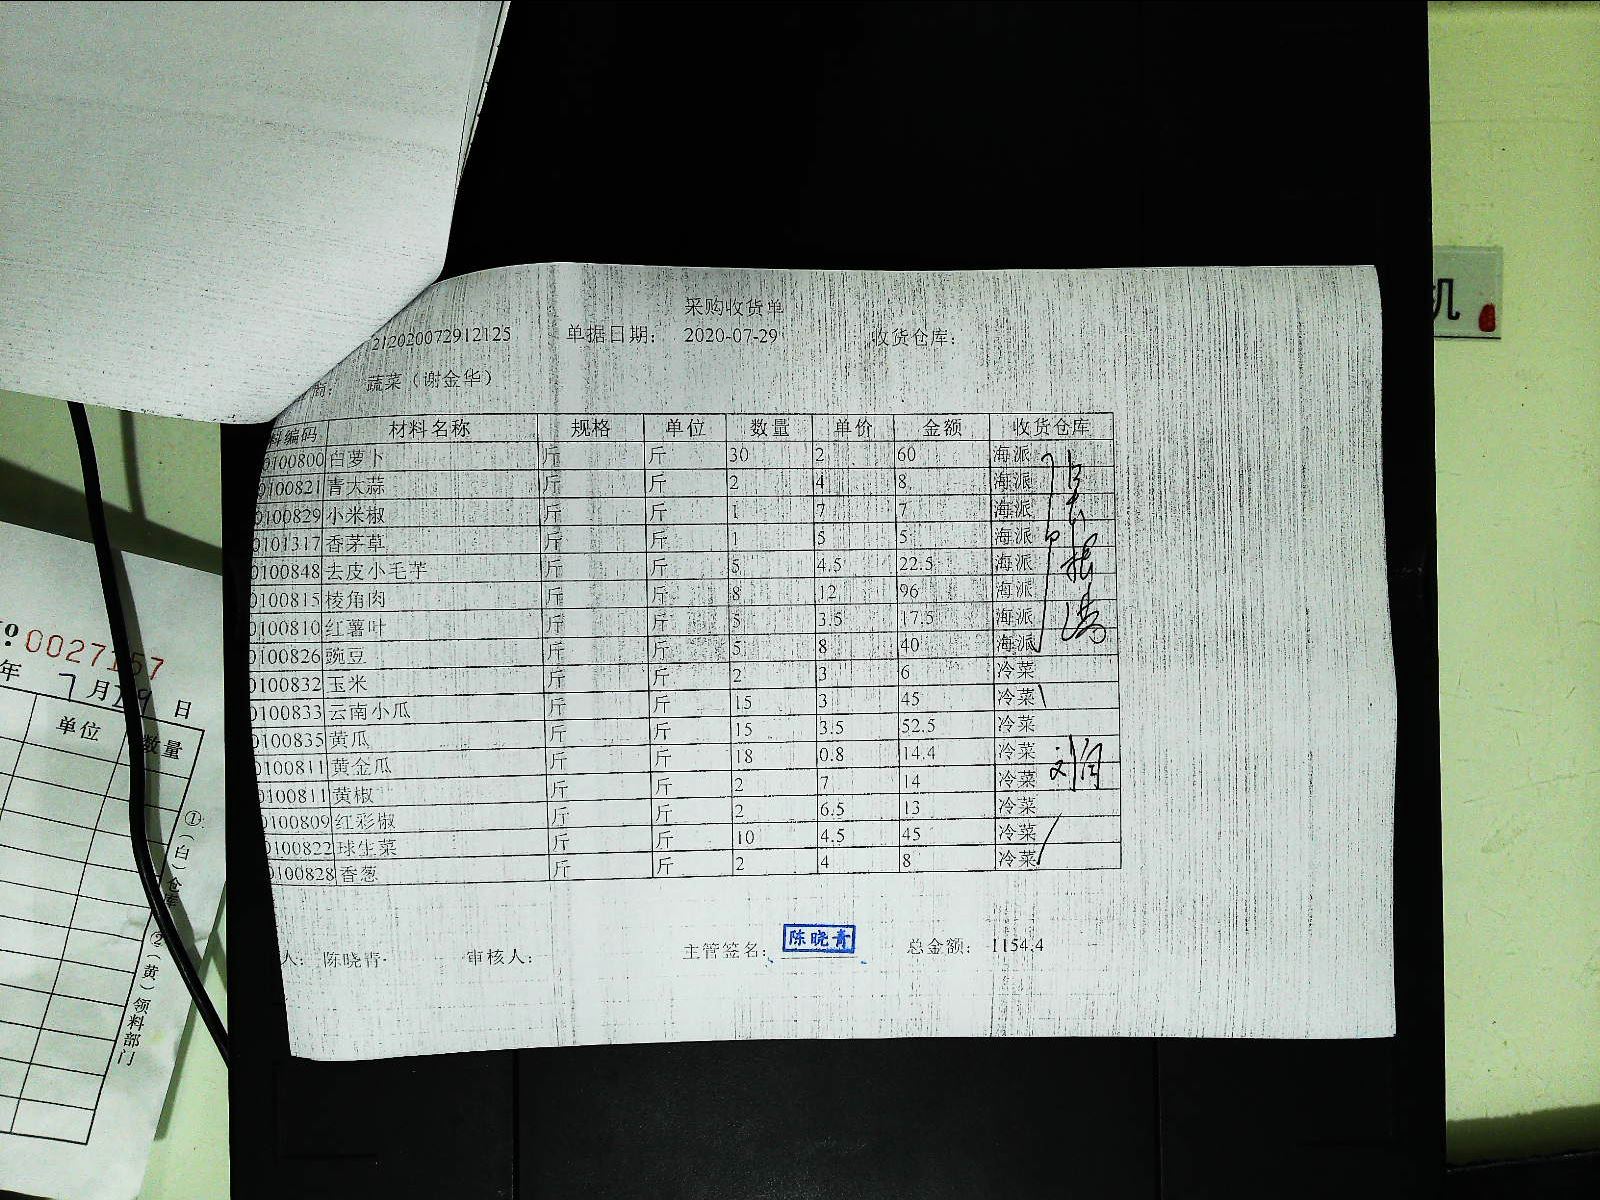 采购收货单
212020072912125 单据日期: 2020-07-29 收货仓库:
商: 蔬菜（谢金华）
料编码 材料名称 规格 单位 数量 单价 金额 收货仓库
0100800 白萝卜 斤 斤 30 2 60 海派
0100821 青大蒜 斤 斤 2 4 8 海派
0100829 小米椒 斤 斤 1 7 7 海派
0101317 香茅草 斤 斤 1 5 5 海派
0100848 去皮小毛芋 斤 斤 5 4.5 22.5 海派
0100815 棱角肉 斤 斤 8 12 96 海派
0100810 红薯叶 斤 斤 5 3.5 17.5 海派
0100826 豌豆 斤 斤 5 8 40 海派
0100832 玉米 斤 斤 2 3 6 冷菜
0100833 云南小瓜 斤 斤 15 3 45 冷菜
0100835 黄瓜 斤 斤 15 3.5 52.5 冷菜
0100811 黄金瓜 斤 斤 18 0.8 14.4 冷菜
0100811 黄椒 斤 斤 2 7 14 冷菜
0100809 红彩椒 斤 斤 2 6.5 13 冷菜
0100822 球生菜 斤 斤 10 4.5 45 冷菜
0100828 香葱 斤 斤 2 4 8 冷菜
人: 陈晓青 审核人: 主管签名: 陈晓青 总金额: 1154.4
№ 0027157
年 7月29日
单位 数量
①（白）仓库 ②（黄）领料部门
机